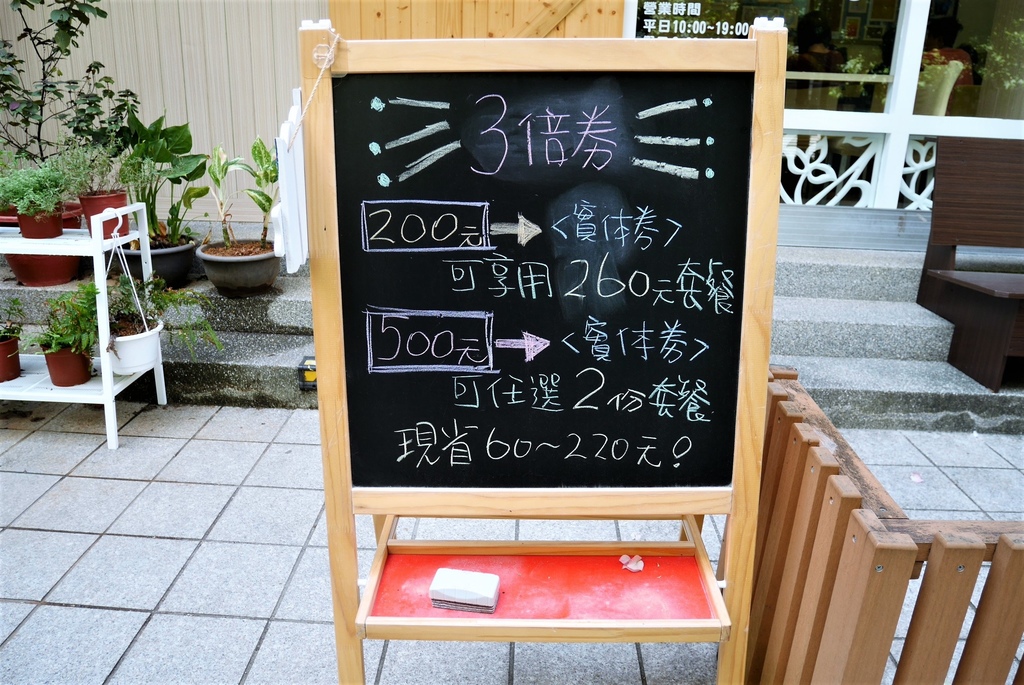 營業時間
平日10:00~19:00
3倍券
200元 → <實体券>
可享用260元套餐
500元 → <實体券>
可任選2份套餐
現省60~220元!